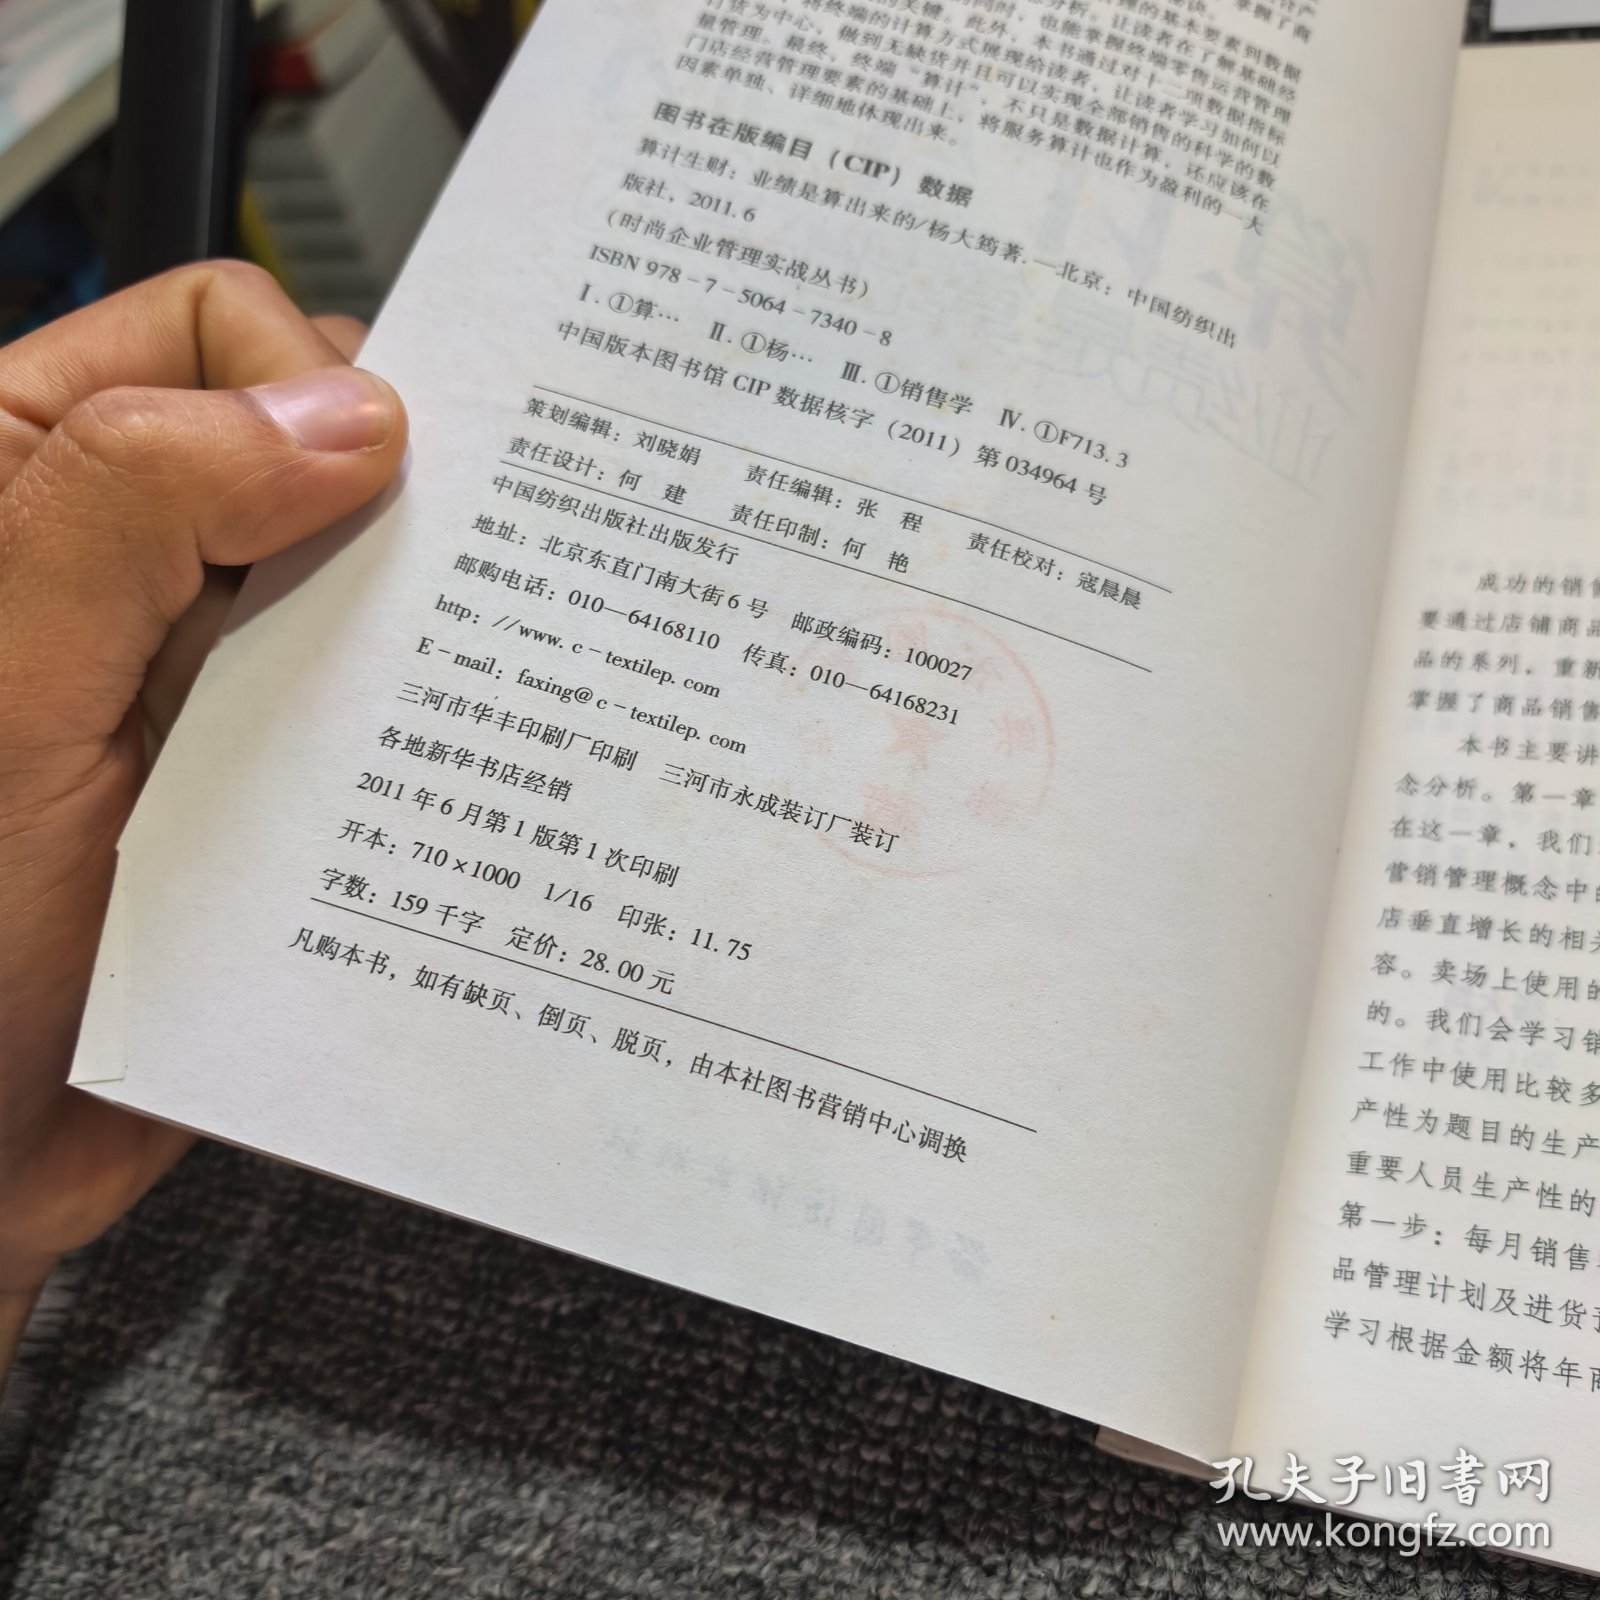 量管理。最终，终端“算计”，不只是数据计算，还应该在
门店经营管理要素的基础上，将服务算计也作为盈利的一大
因素单独、详细地体现出来。
图书在版编目（CIP）数据
算计生财：业绩是算出来的/杨大筠著．—北京：中国纺织出
版社，2011.6
（时尚企业管理实战丛书）
ISBN 978-7-5064-7340-8
Ⅰ.①算… Ⅱ.①杨… Ⅲ.①销售学 Ⅳ.①F713.3
中国版本图书馆 CIP 数据核字（2011）第 034964 号
策划编辑：刘晓娟 责任编辑：张 程 责任校对：寇晨晨
责任设计：何 建 责任印制：何 艳
中国纺织出版社出版发行
地址：北京东直门南大街6号 邮政编码：100027
邮购电话：010—64168110 传真：010—64168231
http：//www.c-textilep.com
E-mail：faxing@c-textilep.com
三河市华丰印刷厂印刷 三河市永成装订厂装订
各地新华书店经销
2011年6月第1版第1次印刷
开本：710×1000 1/16 印张：11.75
字数：159千字 定价：28.00元
凡购本书，如有缺页、倒页、脱页，由本社图书营销中心调换
成功的销售
要通过店铺商品
品的系列，重新
掌握了商品销售
本书主要讲
念分析。第一章
在这一章，我们
营销管理概念中的
店垂直增长的相关
容。卖场上使用的
的。我们会学习销
工作中使用比较多
产性为题目的生产
重要人员生产性的
第一步：每月销售
品管理计划及进货
学习根据金额将年商
孔夫子旧书网
www.kongfz.com